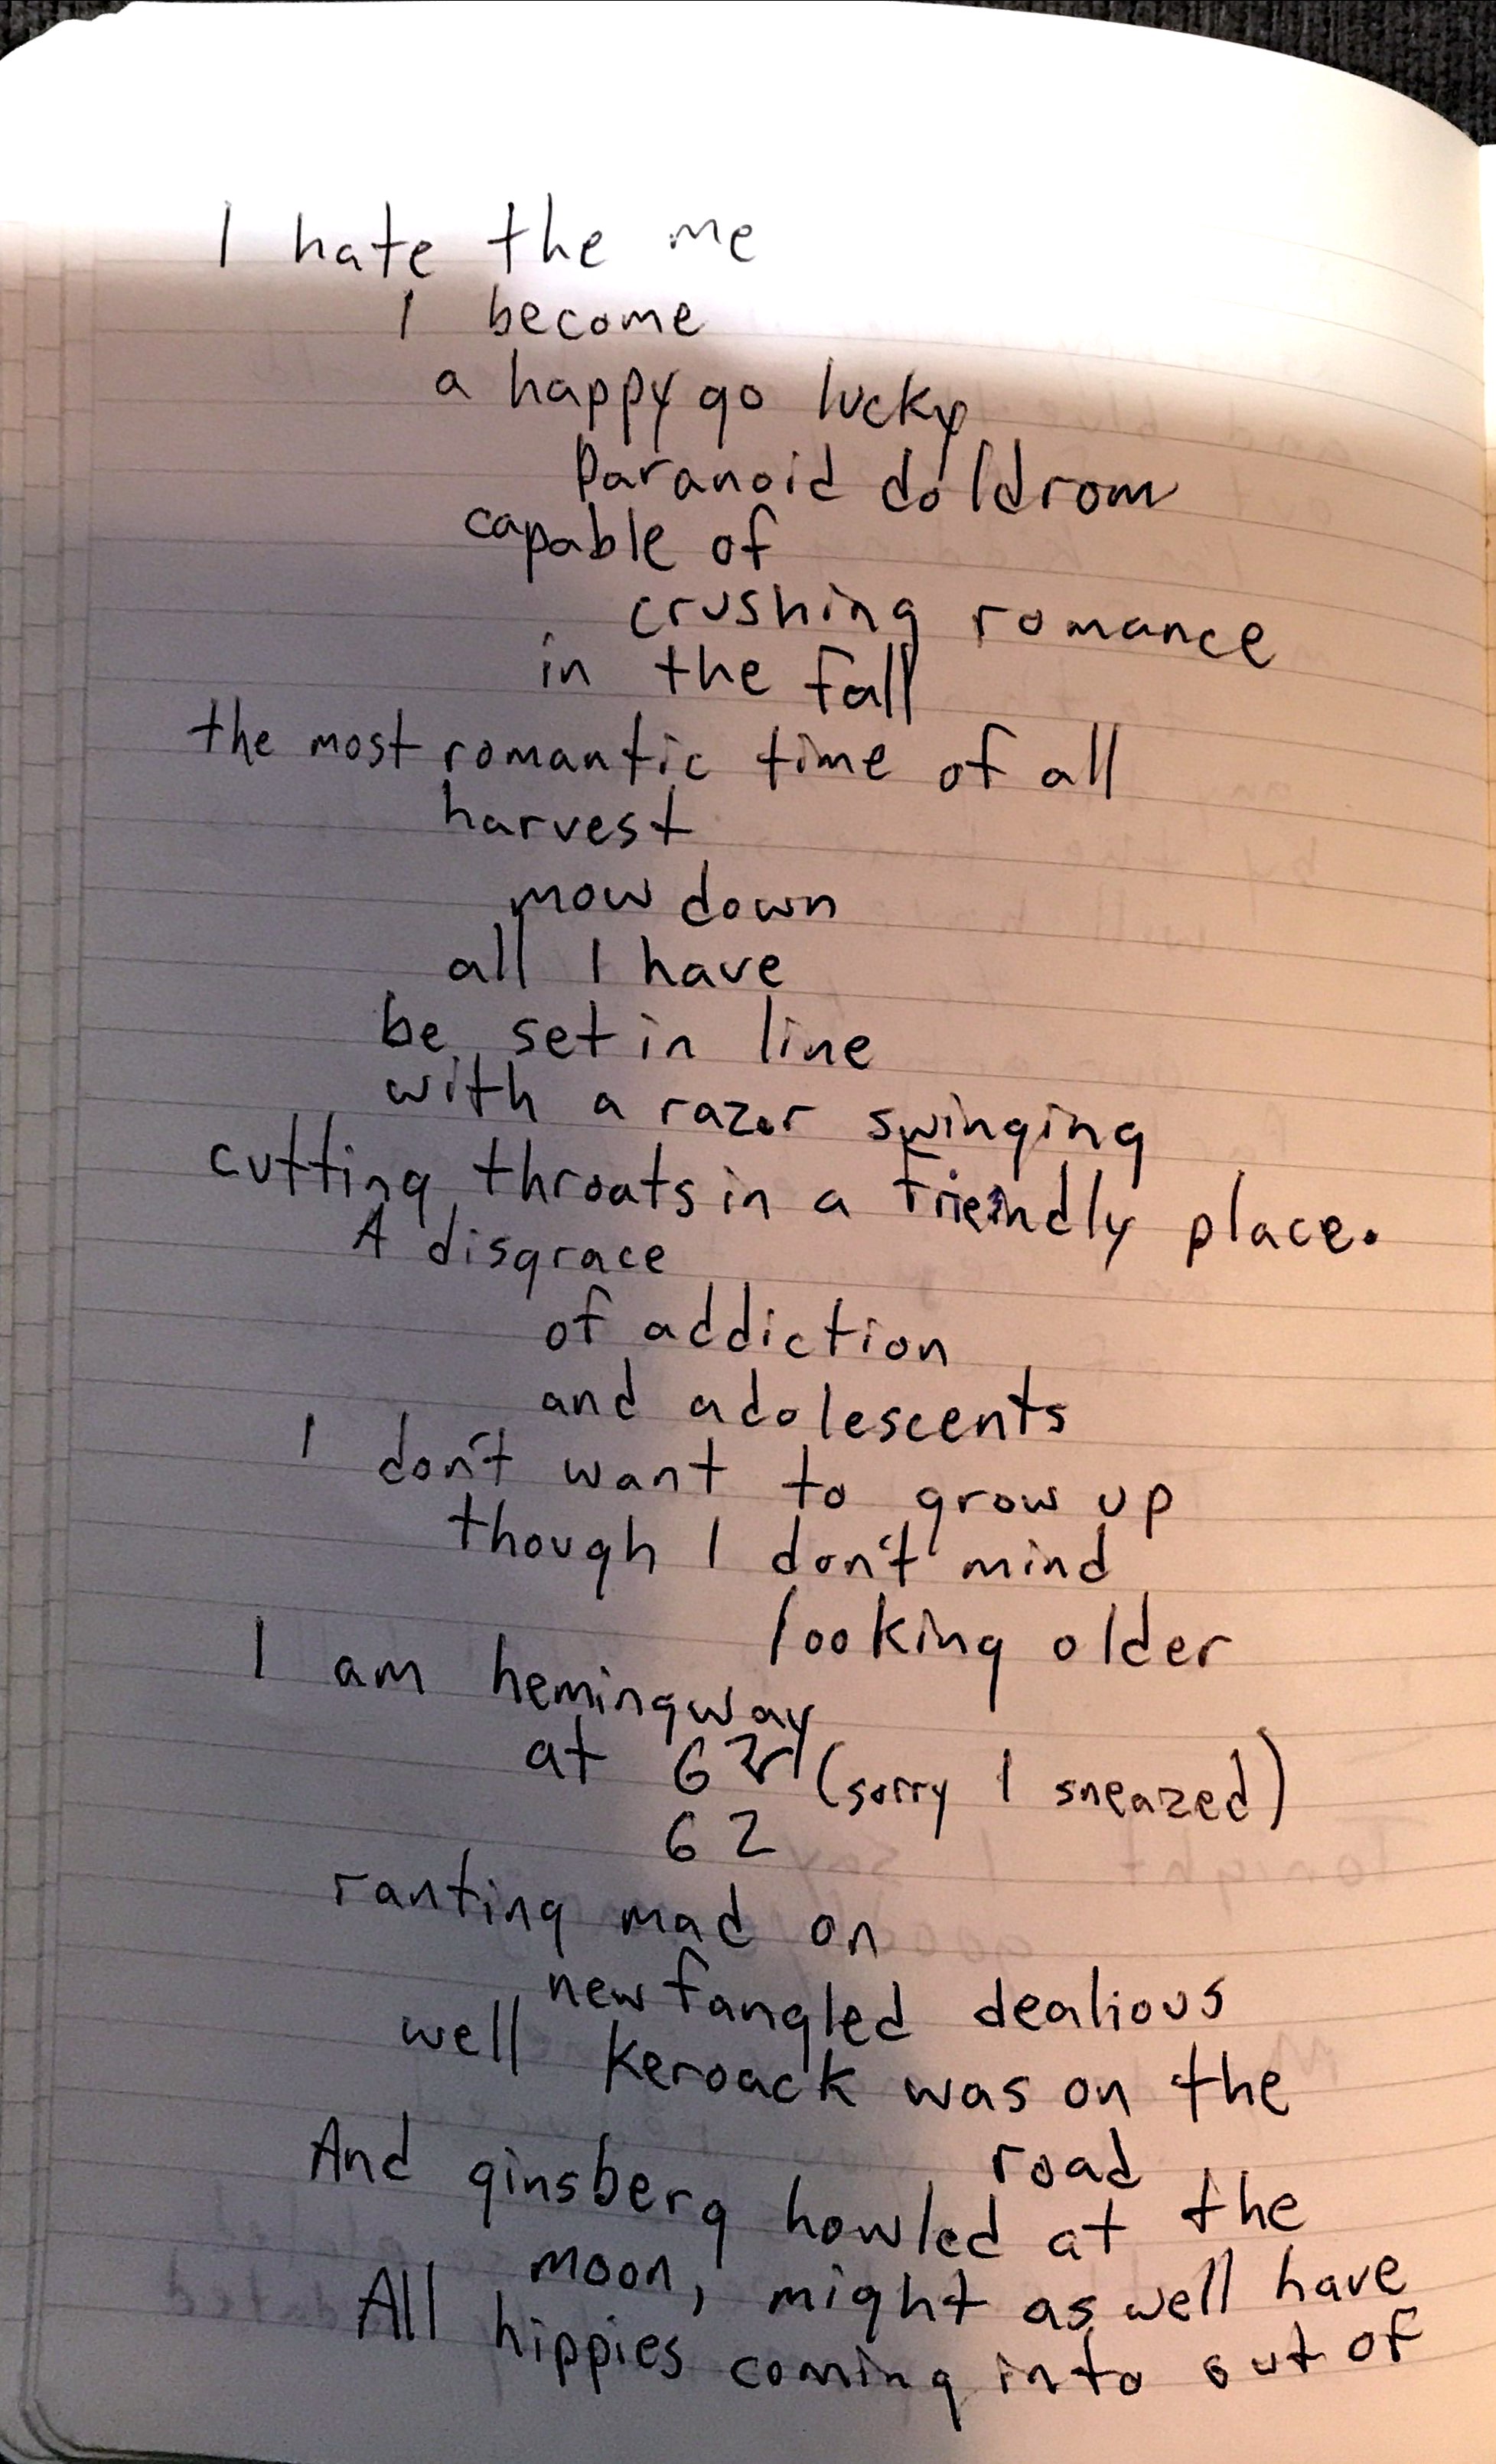 I hate the me
I become
a happy go lucky
Paranoid doldrom
capable of
crushing romance
in the fall
the most romantic time of all
harvest
mow down
all I have
be set in line
with a razor swinging
cutting throats in a friendly place.
A disgrace
of addiction
and adolescents
I don't want to grow up
though I don't mind
looking older
I am hemingway
at 62 (sorry I sneazed)
62
ranting mad on
new fangled dealious
well Keroack was on the
road
And ginsberg howled at the
moon, might as well have
All hippies coming into out of